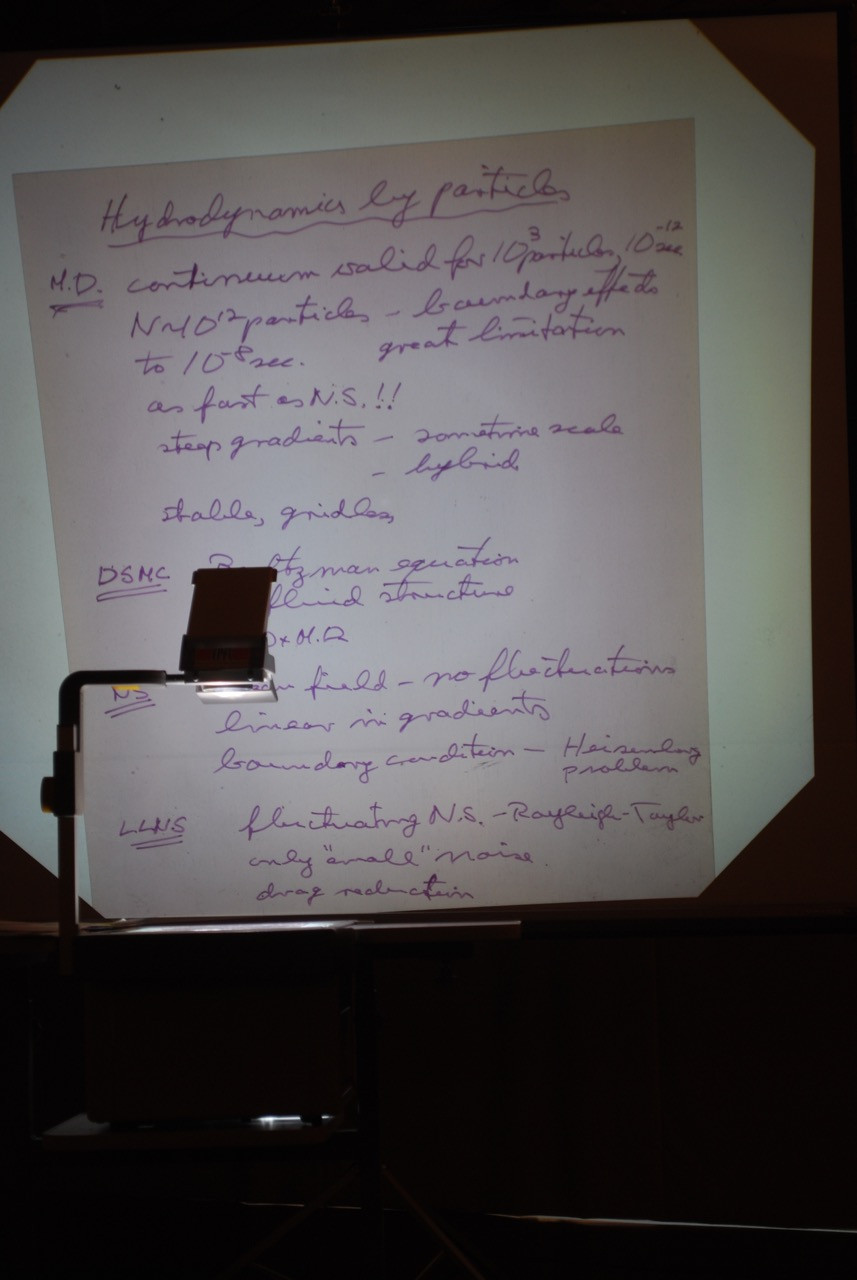 Hydrodynamics by particles
M.D. continuum valid for 10³ particles, 10⁻¹² sec
N~10¹² particles – boundary effects
to 10⁻⁸ sec. great limitation
as fast as N.S.!!
steep gradients – same time scale
– hybrid
stable, gridless
DSMC Boltzman equation
fluid structure
x M.D.
NS field – no fluctuations
linear in gradients
boundary condition – Heisenberg
problem
LLNS fluctuating N.S. – Rayleigh-Taylor
only "small" noise
drag reduction